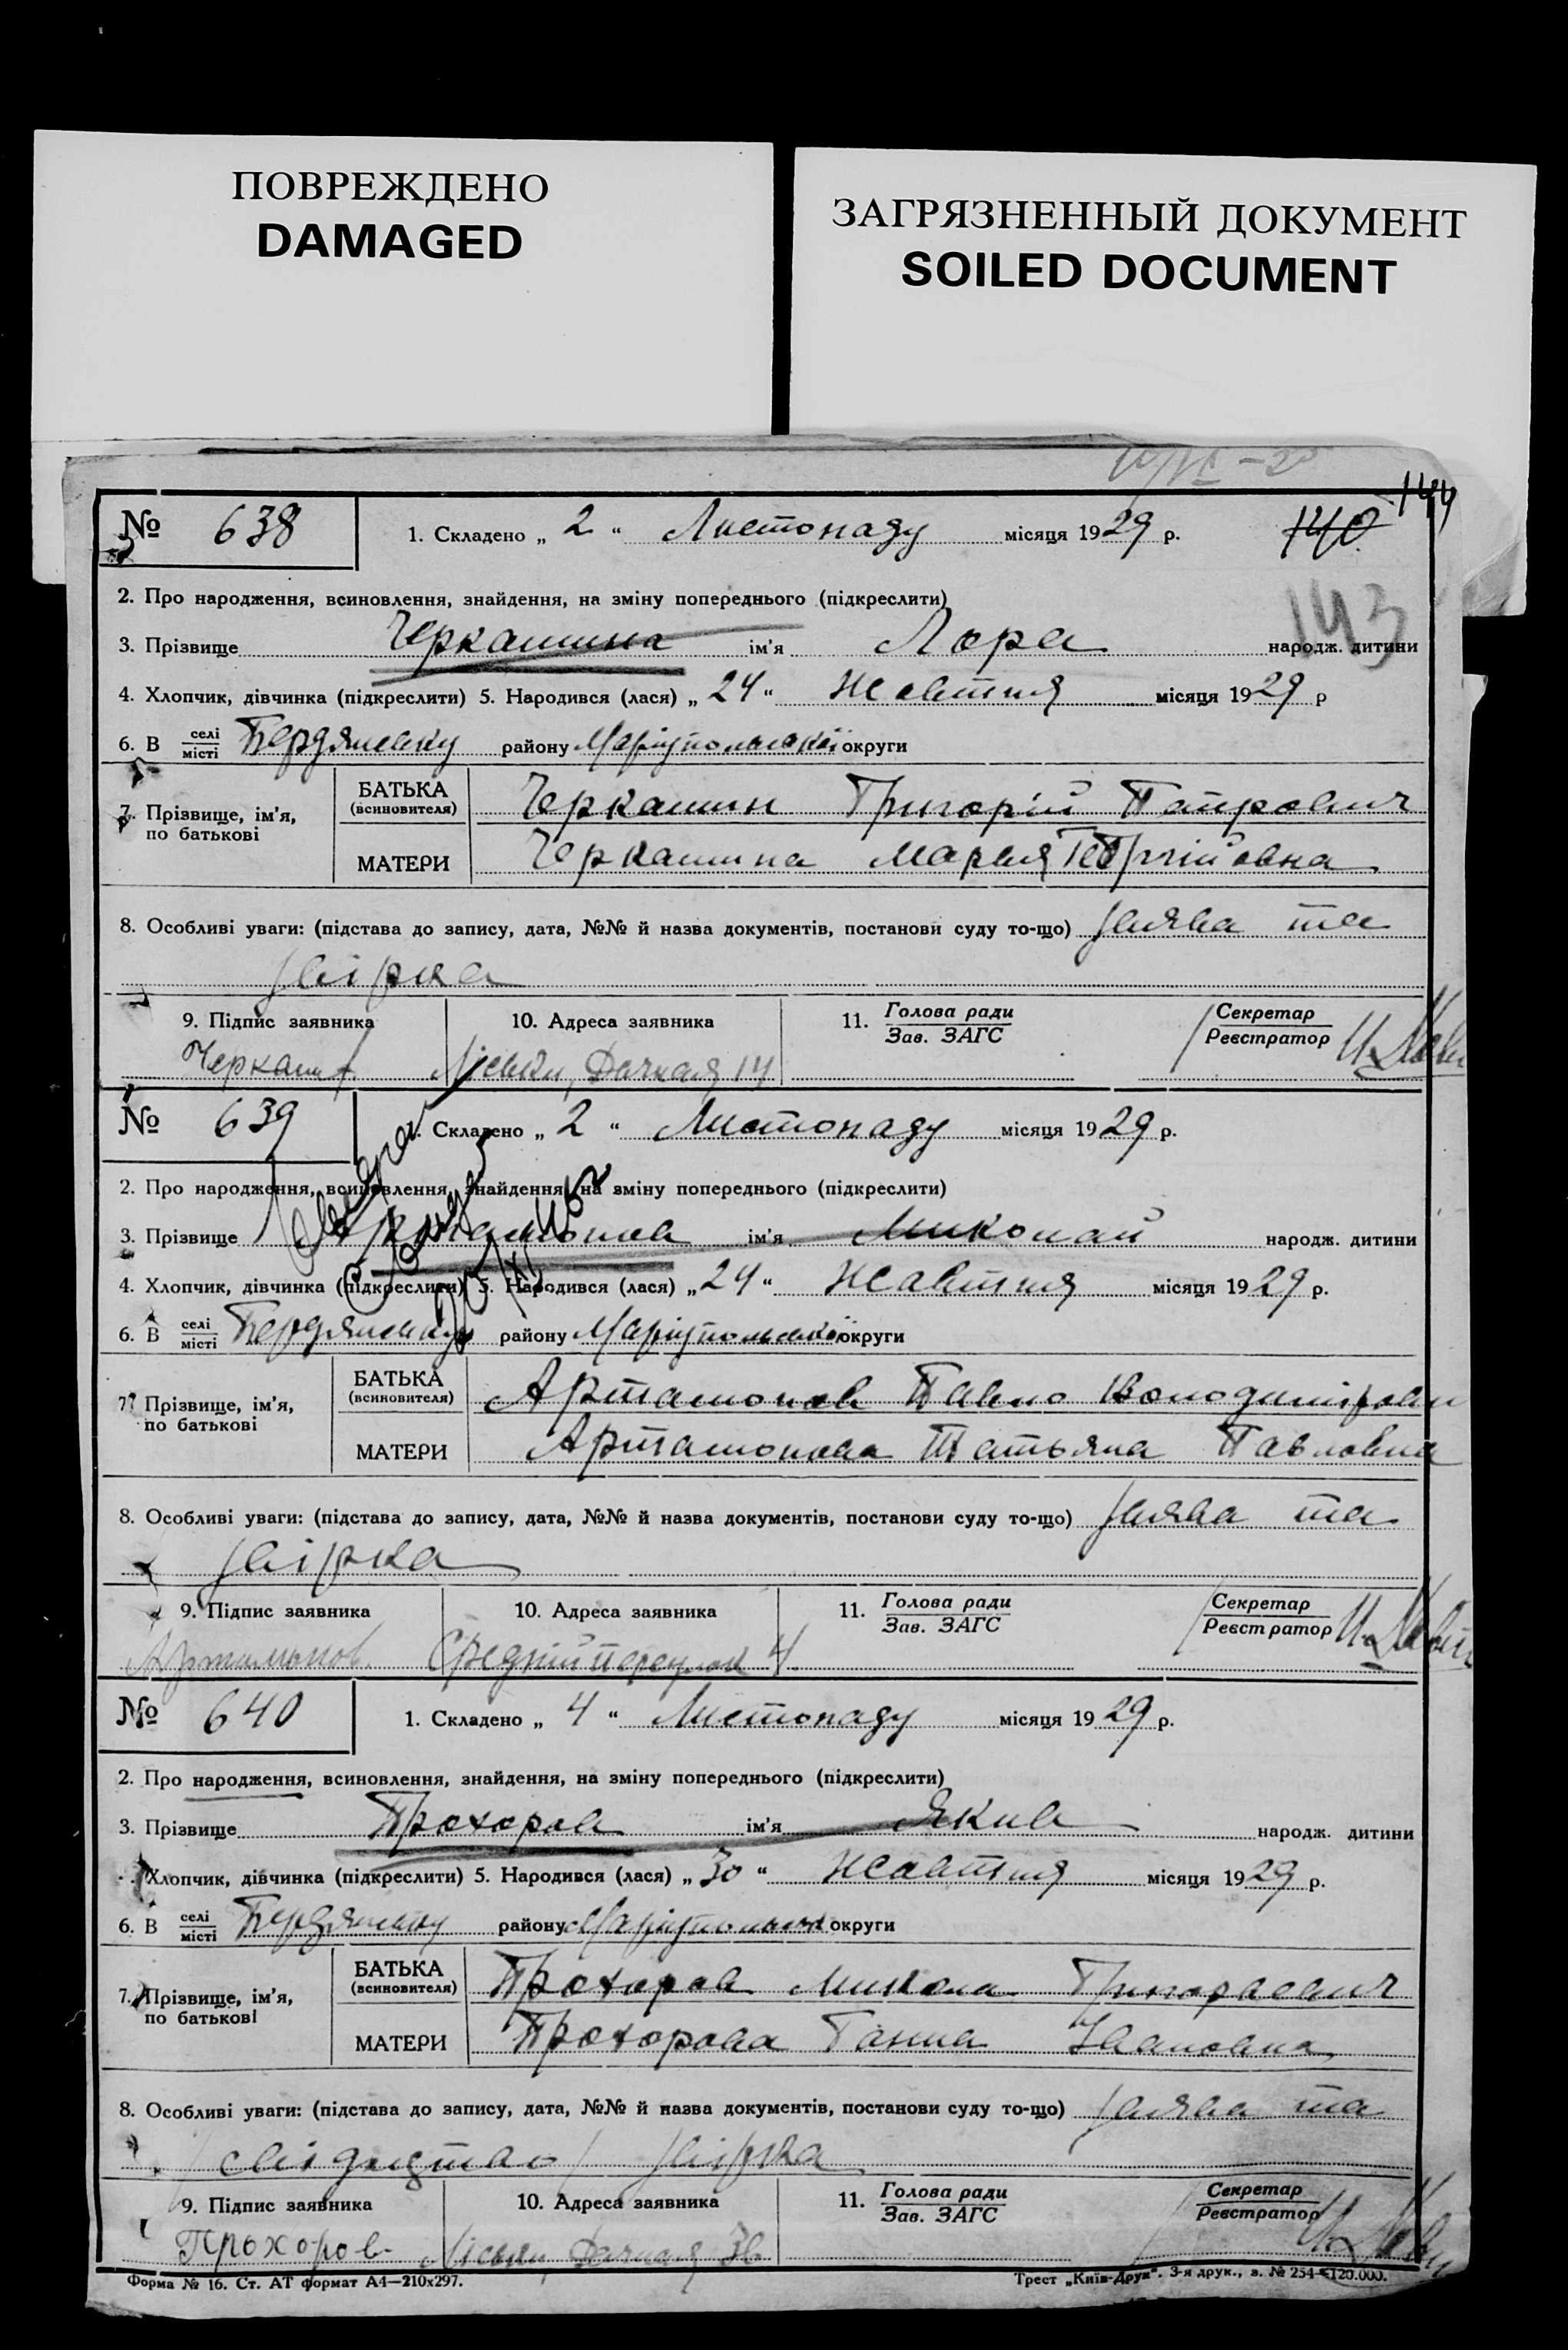 ПОВРЕЖДЕНО
DAMAGED
ЗАГРЯЗНЕННЫЙ ДОКУМЕНТ
SOILED DOCUMENT
144
140
143
№ 638
1. Складено „ 2 “ Листопаду місяця 1929 р.
2. Про народження, всиновлення, знайдення, на зміну попереднього (підкреслити)
3. Прізвище Черкашина ім'я Лора народж. дитини
4. Хлопчик, дівчинка (підкреслити) 5. Народився (лася) „ 24 “ Жовтня місяця 1929 р
6. В селі місті Бердянську району Маріупольської округи
7. Прізвище, ім'я, по батькові
БАТЬКА (всиновителя) Черкашин Григорій Петрович
МАТЕРИ Черкашина Мария
8. Особливі уваги: (підстава до запису, дата, №№ й назва документів, постанови суду то-що) заява та
звірка
9. Підпис заявника
10. Адреса заявника
11. Голова ради Зав. ЗАГС
Секретар Реєстратор
Черкаш Ліськи, Дачная 14
№ 639
1. Складено „ 2 “ Листопаду місяця 1929 р.
2. Про народження, всиновлення, знайдення, на зміну попереднього (підкреслити)
3. Прізвище Артамонов ім'я Миколай народж. дитини
4. Хлопчик, дівчинка (підкреслити) 5. Народився (лася) „ 24 “ Жовтня місяця 1929 р.
6. В селі місті Бердянську району Маріупольської округи
7. Прізвище, ім'я, по батькові
БАТЬКА (всиновителя) Артамонов Павло Володимірович
МАТЕРИ Артамонова Татьяна Павловна
8. Особливі уваги: (підстава до запису, дата, №№ й назва документів, постанови суду то-що) заява та
звірка
9. Підпис заявника
10. Адреса заявника
11. Голова ради Зав. ЗАГС
Секретар Реєстратор
Артамонов. Средній переулок 4
№ 640
1. Складено „ 4 “ Листопаду місяця 1929 р.
2. Про народження, всиновлення, знайдення, на зміну попереднього (підкреслити)
3. Прізвище Прохоров ім'я Яків народж. дитини
4. Хлопчик, дівчинка (підкреслити) 5. Народився (лася) „ 30 “ Жовтня місяця 1929 р.
6. В селі місті Бердянську району Маріупольськ округи
7. Прізвище, ім'я, по батькові
БАТЬКА (всиновителя) Прохоров Микола Григорович
МАТЕРИ Прохорова Ганна Івановна
8. Особливі уваги: (підстава до запису, дата, №№ й назва документів, постанови суду то-що) заява та
звірка
9. Підпис заявника
10. Адреса заявника
11. Голова ради Зав. ЗАГС
Секретар Реєстратор
Прохоров Ліськи, Дачная 36
Форма № 16. Ст. АТ формат А4—210х297.
Трест „Київ-Друк“. 3-я друк., з. № 254—120.000.